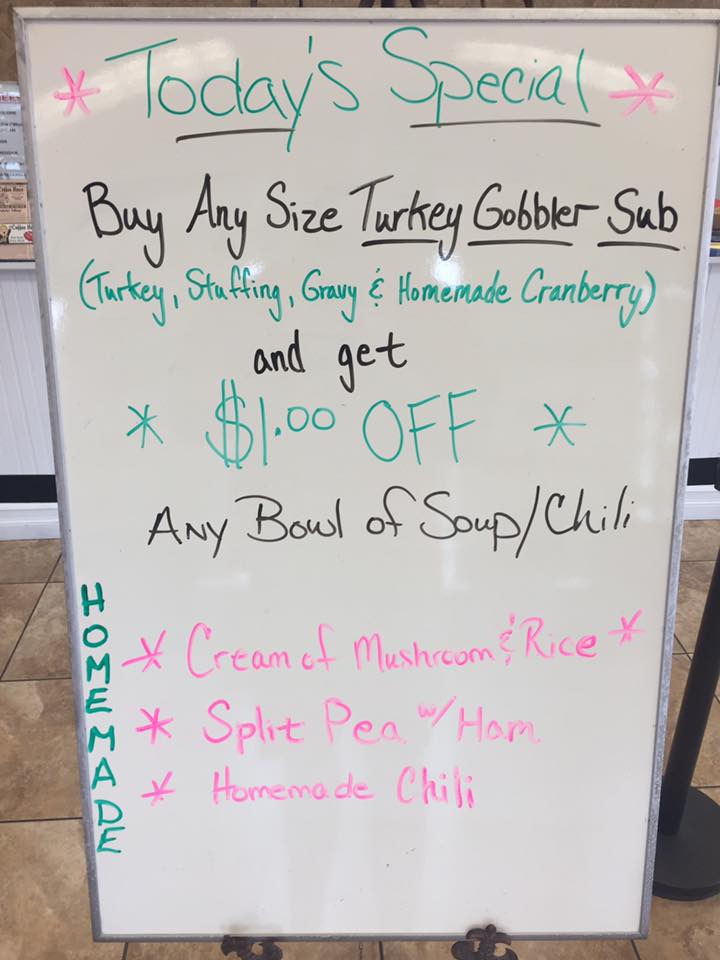 * Today's Special *
Buy Any Size Turkey Gobbler Sub
(Turkey, Stuffing, Gravy & Homemade Cranberry)
and get
* $1.00 OFF *
Any Bowl of Soup/Chili
HOMEMADE
* Cream of Mushroom & Rice *
* Split Pea w/ Ham
* Homemade Chili